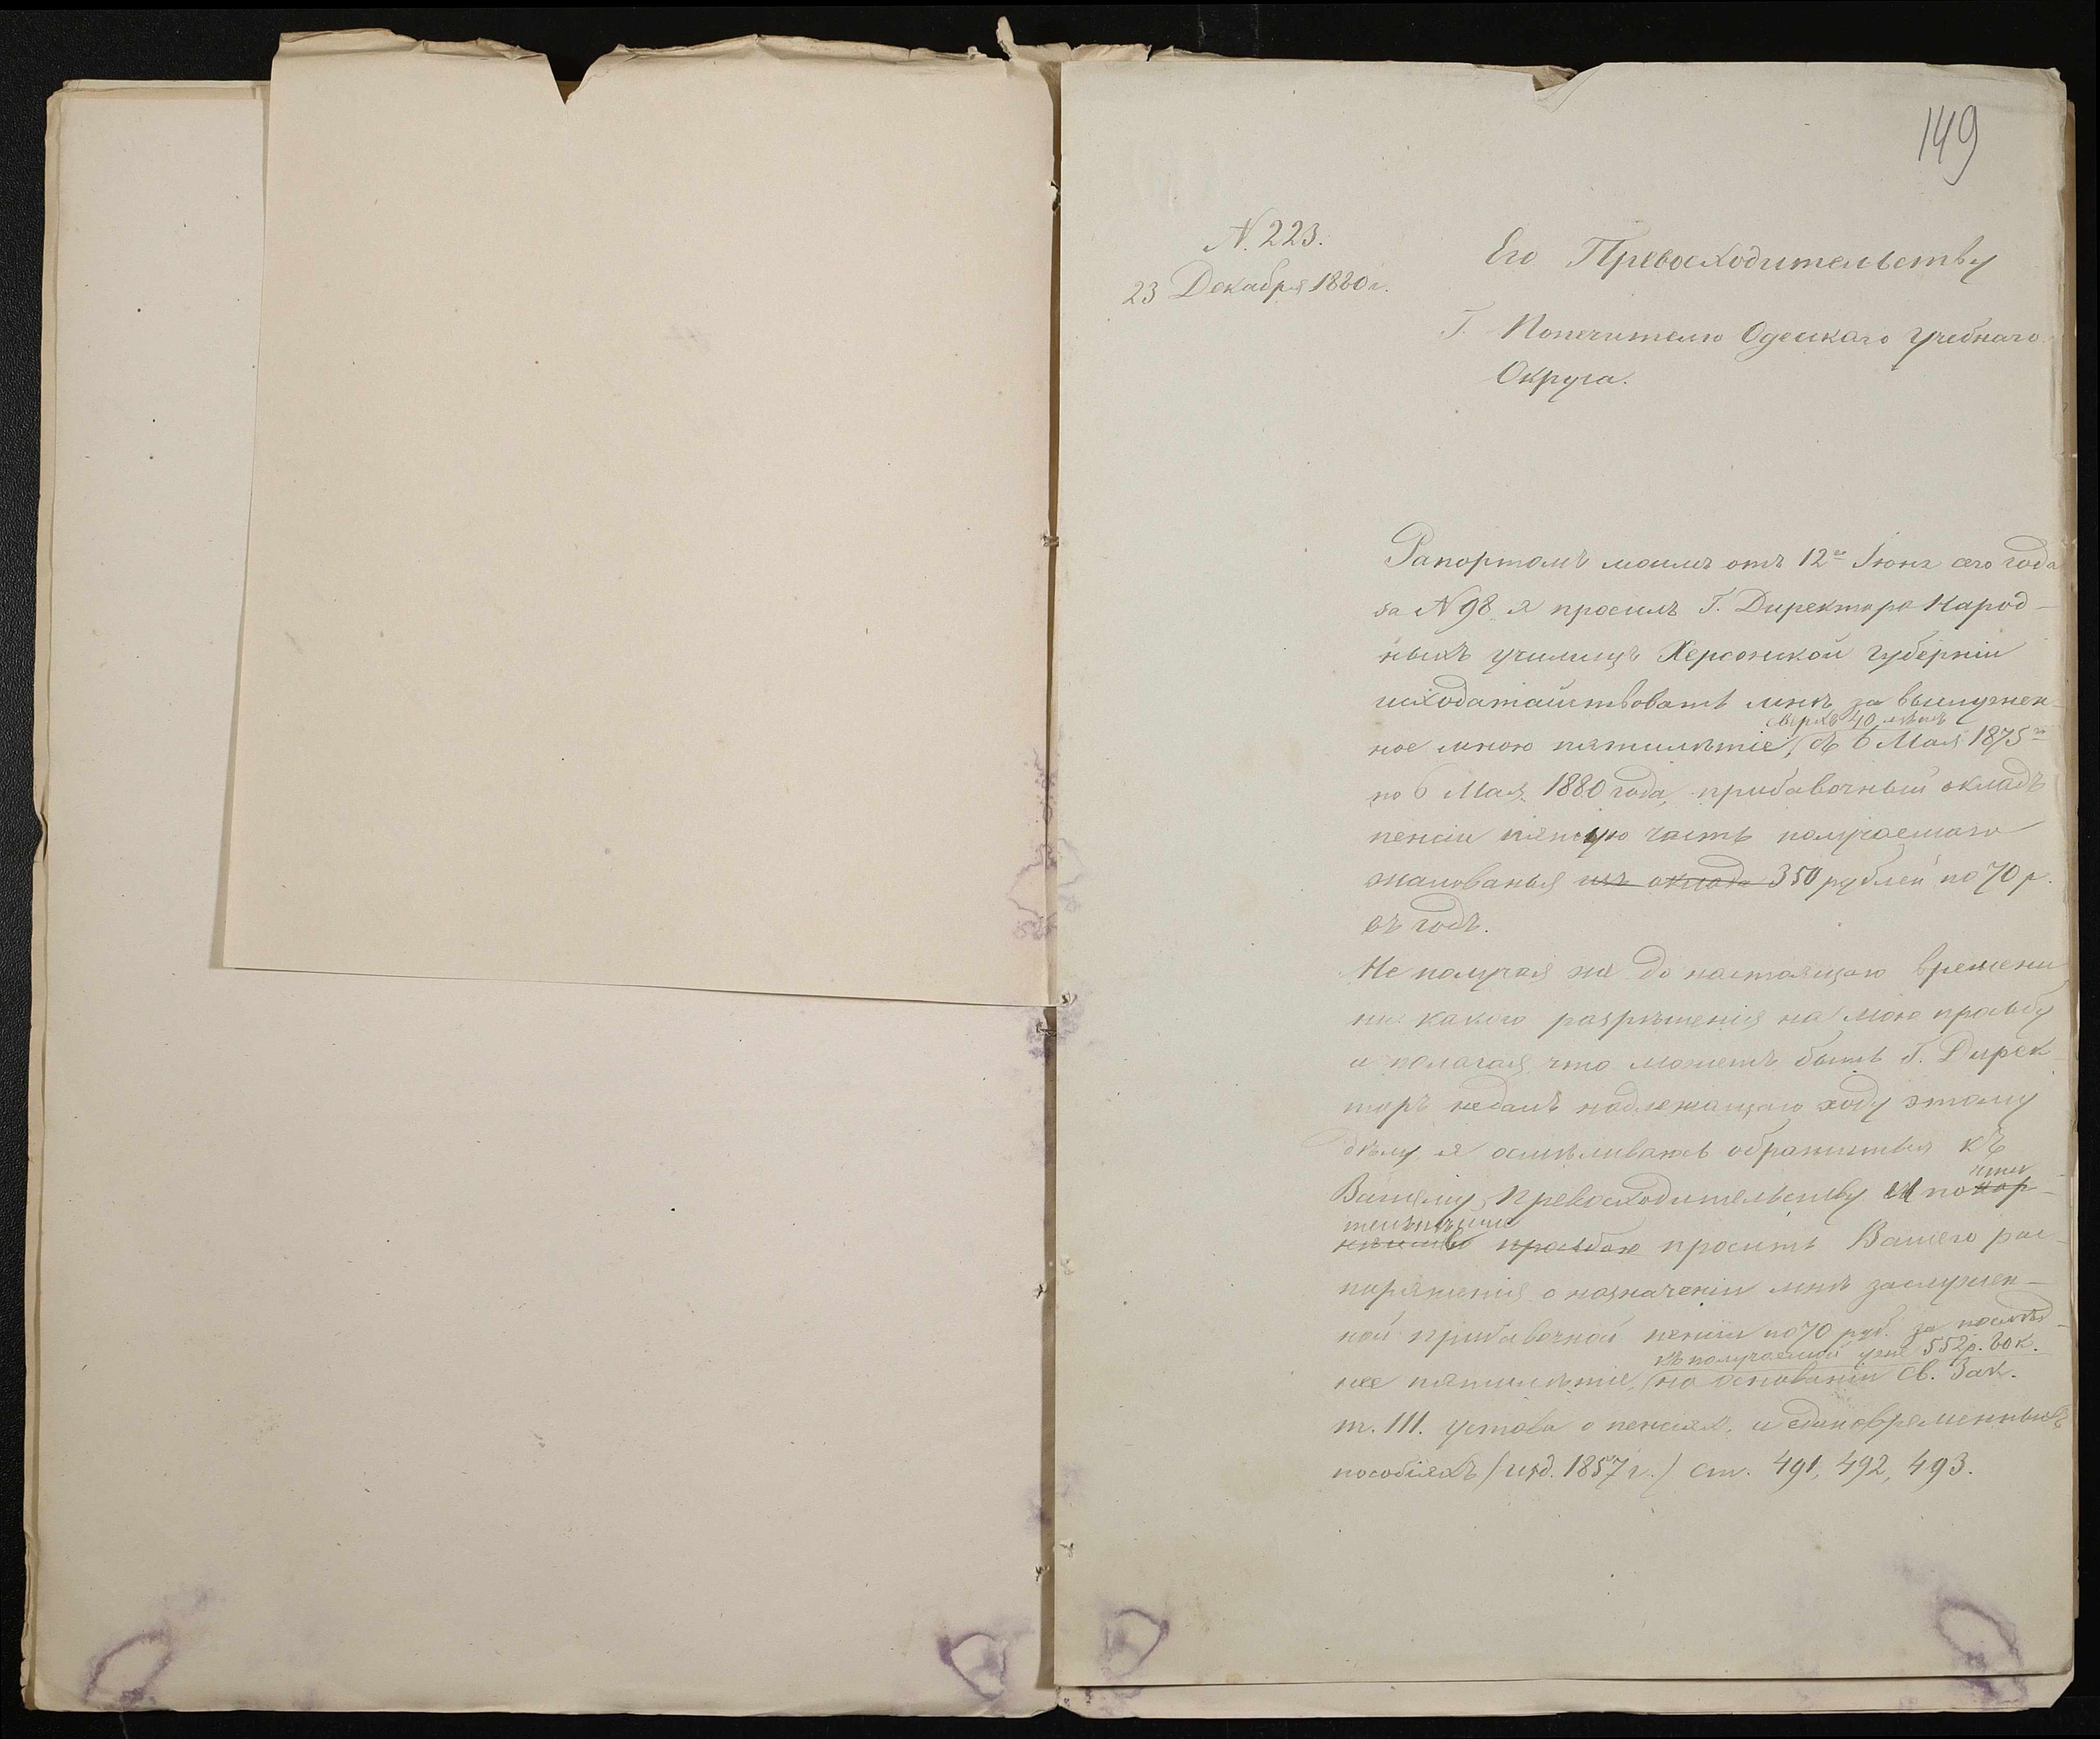 149
N. 223.
23 Декабря 1880 г.
Его Превосходительству
Г. Попечителю Одесскаго Учебнаго
Округа.
Рапортомъ моимъ отъ 12го Iюня сего года
за N 98 я просилъ Г. Директора Народ-
ныхъ училищъ Херсонской Губернiи
исходатайствовать мнѣ за выслужен-
сверхъ 40 лѣтъ
ное мною пятилѣтiе, съ 6 Мая 1875го
по 6 Мая 1880 года, прибавочный окладъ
пенсiи пятую часть получаемаго
жалованья изъ оклада 350 рублей по 70 р.
въ годъ.
Не получая же до настоящаго времени
ни какого разрѣшенiя на мою прозьбу
и полагая, что можетъ быть Г. Дирек-
торъ недалъ надлежащаго ходу этому
дѣлу, я осмѣливаюсь обратиться къ
Вашему Превосходительству и покор-
чти
тельнѣйше
нѣйшею прозьбою просить Вашего рас-
поряженiя о назначенiи мнѣ заслужен-
ной прибавочной пенсiи по 70 руб. за послѣд-
къ получаемой уже 552 р. 80 к.
нее пятилѣтiе, на основанiи Св. Зак.
т. III. устава о пенсiяхъ и единовременныхъ
пособiяхъ (изд. 1857 г.) ст. 491, 492, 493.